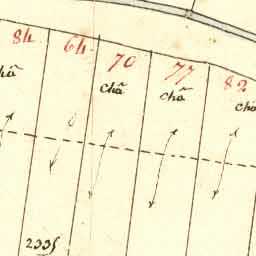 84 64 70 77 82
chã chã chã
2335